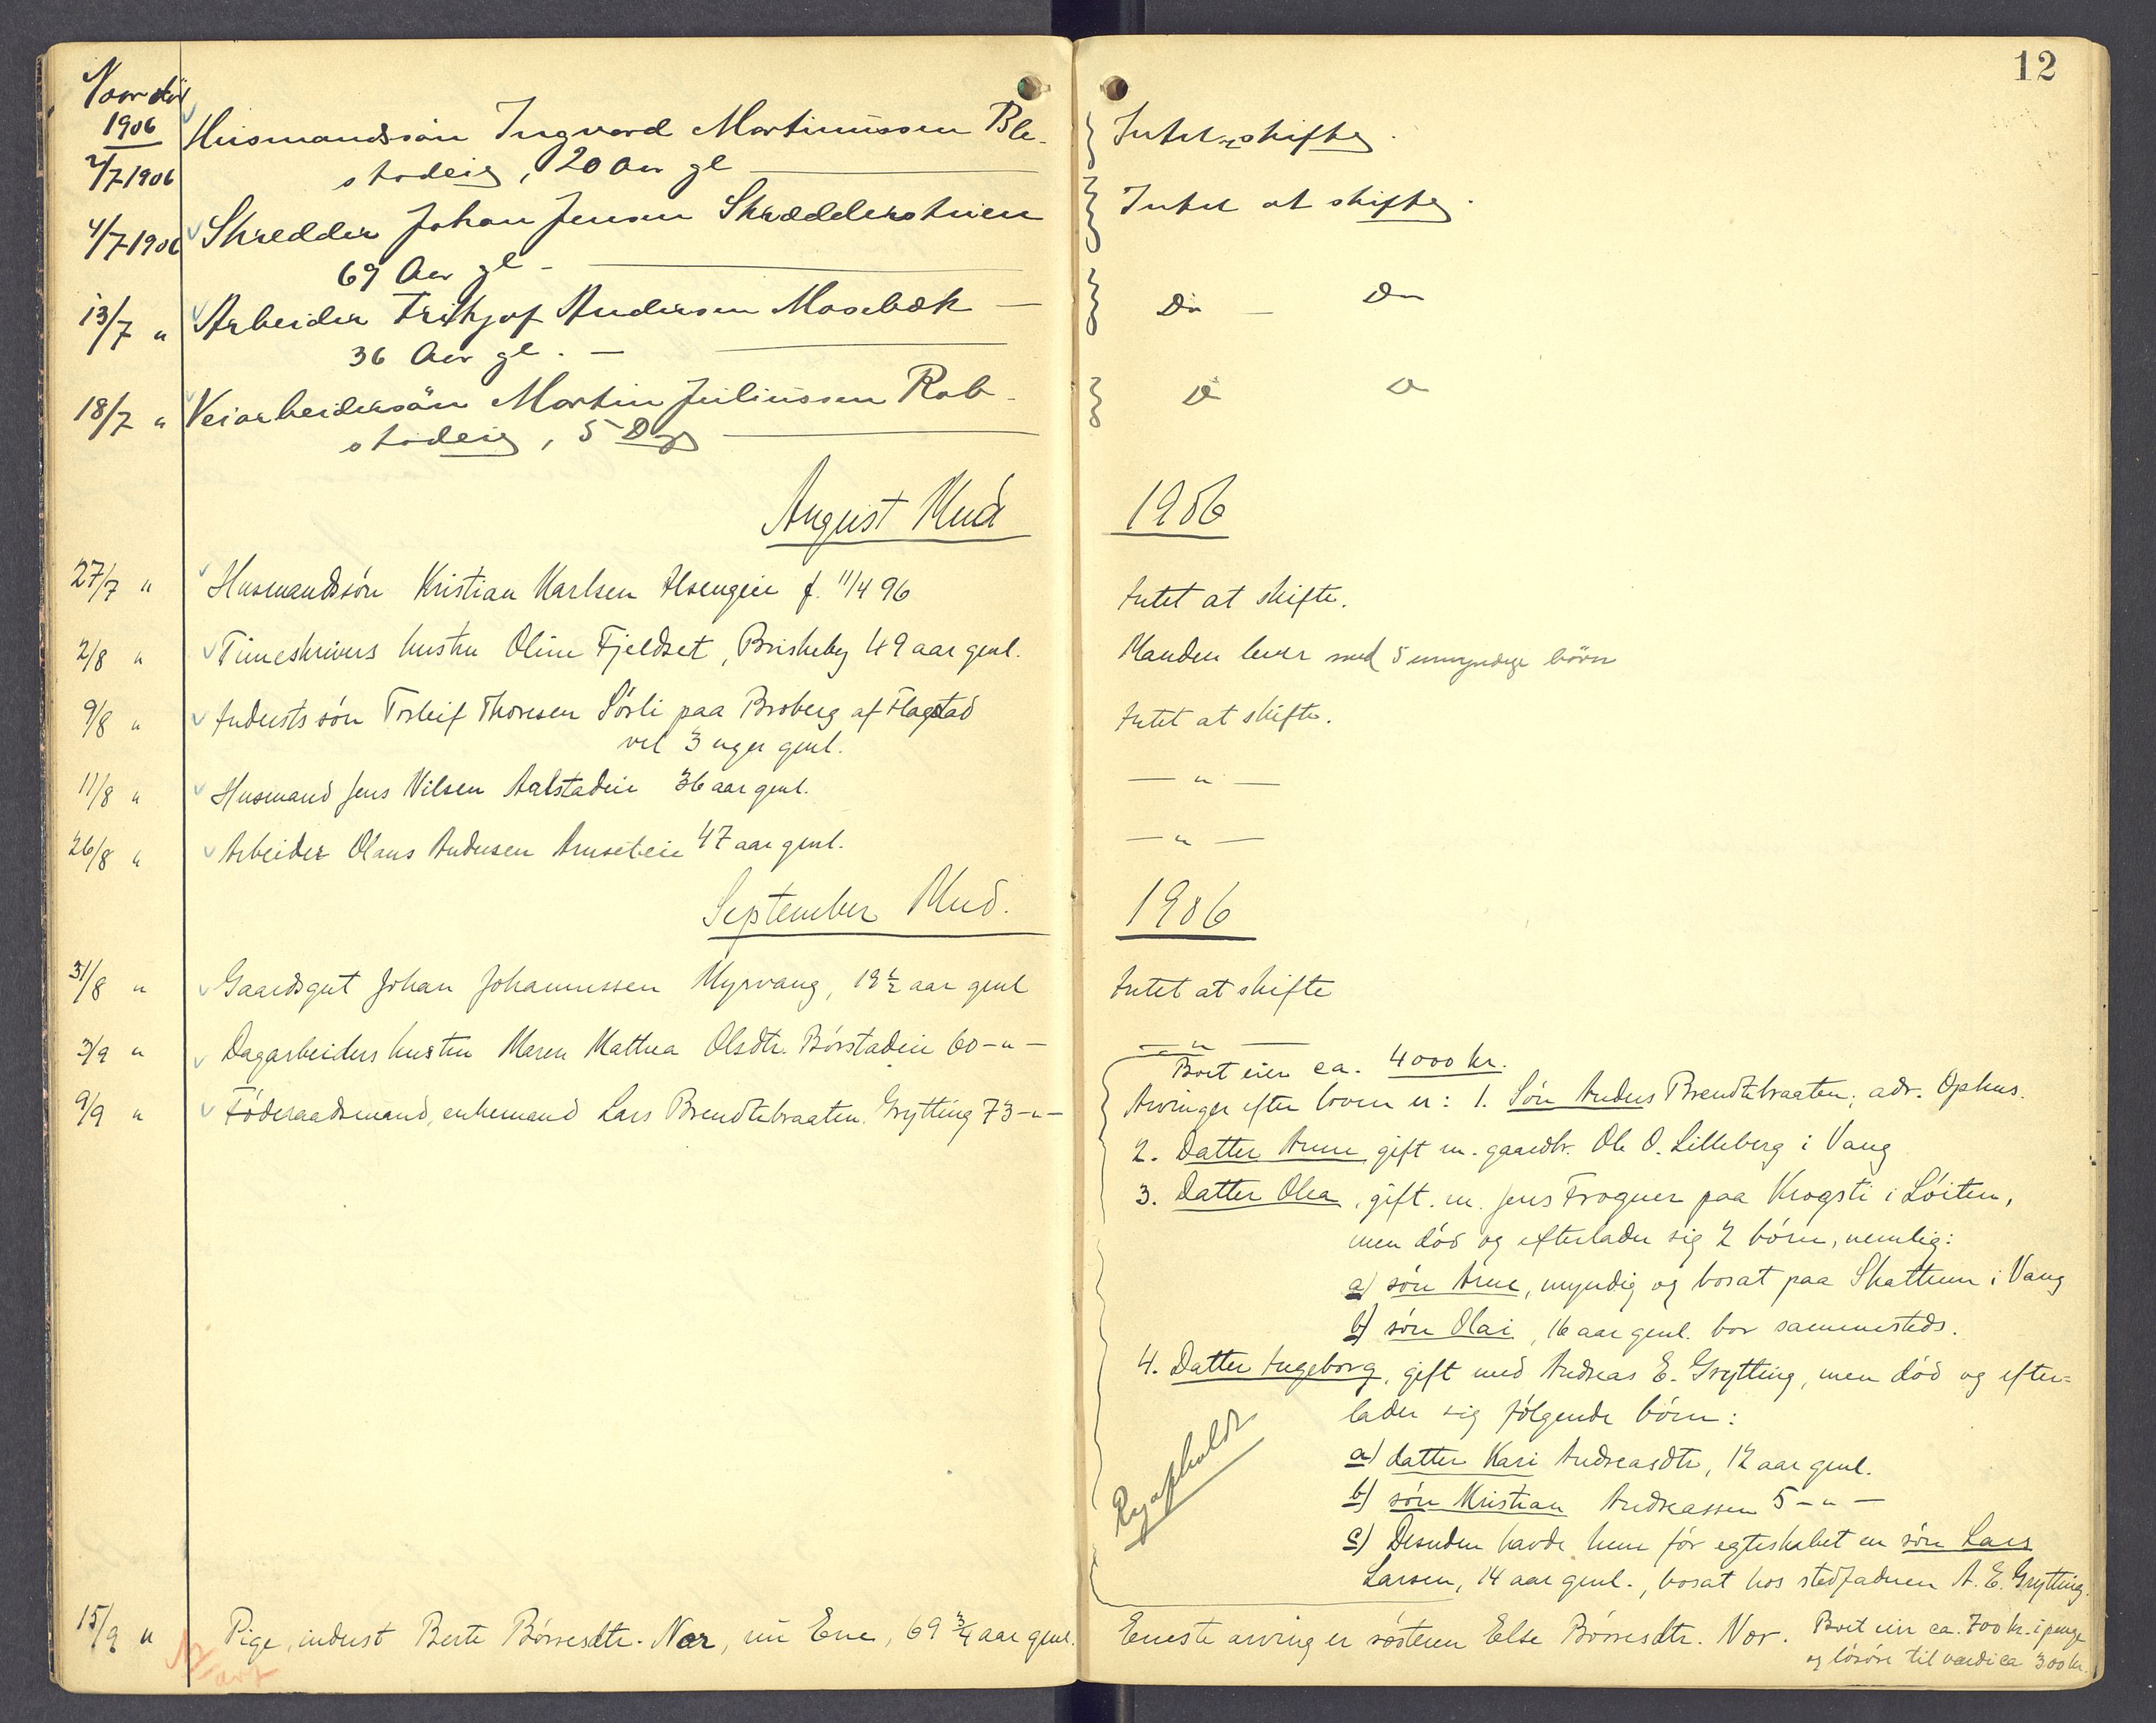 12
Naar død
1906
2/7 1906 Husmandssøn Ingvard Martinussen Ble-
stadeie, 20 Aar gl
Intet at skifte.
4/7 1906 Skredder Johan Jensen Skrædderstuen
69 Aar gl -
Intet at skifte.
13/7 " Arbeider Frithjof Andersen Mosebæk
36 Aar gl. -
Do Do
18/7 " Veiarbeidersøn Martin Juliussen Rob-
stadeie, 5 Dage
Do Do
August Mnd 1906
27/7 " Husmandssøn Kristian Karlsen Alsengeie f. 11/4 96
Intet at skifte.
2/8 " Timeskrivers hustru Oline Fjeldset, Briskeby 49 aar gml.
Manden lever med 5 umyndige børn
9/8 " Inderstssøn Torleif Thoresen Sørli paa Broberg af Flagstad
vel 3 uger gml.
Intet at skifte.
11/8 " Husmand Jens Nilsen Aalstadeie 36 aar gml.
— " —
26/8 " Arbeider Olaus Andersen Arnseteie 47 aar gml.
— " —
September Mnd. 1906
31/8 " Gaardsgut Johan Johannessen Myrvang, 19 1/2 aar gml
Intet at skifte
3/9 " Dagarbeiders hustru Maren Mathea Olsdtr. Børstadeie 60 — " —
— " —
9/9 " Føderaadsmand, enkemand Lars Brendtebraaten Grytting 73 — " —
Boet eier ca. 4000 kr.
Arvinger efter loven er: 1. Søn Anders Brendtebraaten; adr. Ophus.
2. Datter Anne gift m. gaardbr. Ole O. Lilleberg i Vang
3. Datter Olea, gift. m. Jens Frogner paa Krogsti i Løiten,
men død og efterlader sig 2 børn, nemlig:
a) søn Arne, myndig og bosat paa Skattum i Vang
b) søn Olai, 16 aar gml. bor sammesteds.
4. Datter Ingeborg, gift med Andreas E. Grytting, men død og efter=
lader sig følgende børn:
a) datter Kari Andreasdtr, 12 aar gml.
b) søn Kristian Andreassen 5 — " —
c) Desuden havde hun før egteskabet en søn Lars
Larsen, 14 aar gml., bosat hos stedfaderen A. E. Grytting.
15/9 " Pige, inderst Berte Børresdtr. Nor, nu Ene, 69 3/4 aar gml.
Eneste arving er søsteren Else Børresdtr. Nor. Boet eier ca. 700 kr. i penge
og løsøre til værdi ca 300 kr.